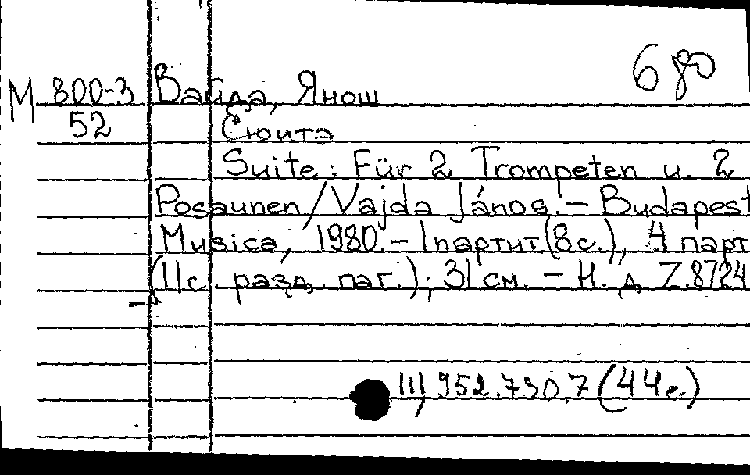 6 80
М 800-3 Вайда, Янош
52 Сюита
Suite: Für 2 Trompeten u. 2
Posaunen/Vajda János. - Budapest
Musica, 1980. - 1 партит. (8 с.), 4 парт
(11 с. разд. паг.); 31 см. - Н. д Z.8724
111) 952.730.7 (44е.)